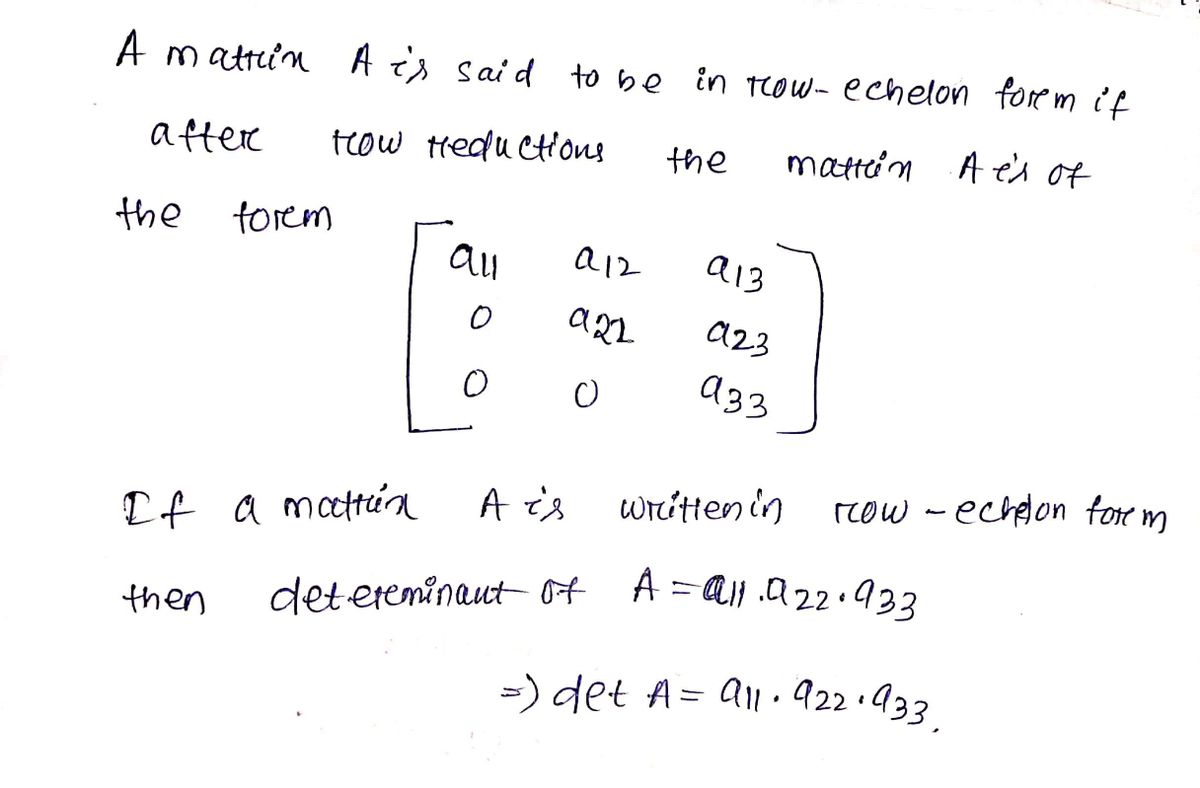 A matrix A is said to be in row-echelon form if
after row reductions the matrix A is of
the form
a11 a12 a13
0 a22 a23
0 0 a33
If a matrix A is written in row-echelon form
then determinant of A = a11 . a22 . a33
=) det A = a11 . a22 . a33.